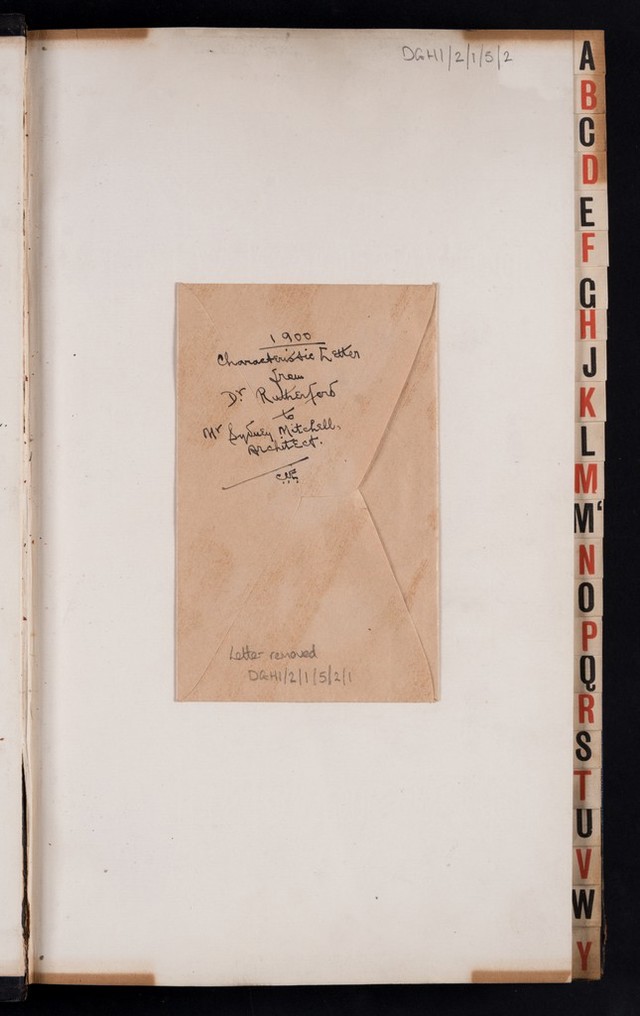 DGH1/2/1/5/2
1900
Characteristic Letter
from
Dr Rutherford
to
Mr Sydney Mitchell,
Architect.
Letter removed
DGH1/2/1/5/2/1
A
B
C
D
E
F
G
H
J
K
L
M
M‘
N
O
P
Q
R
S
T
U
V
W
Y